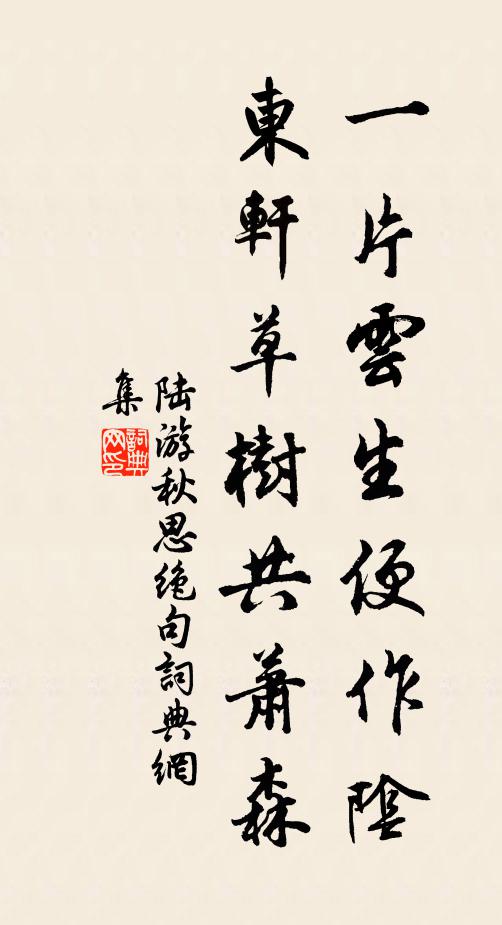 一片雲生便作陰
東軒草樹共蕭森
陸游秋思絶句詞典網
集
詞典网印